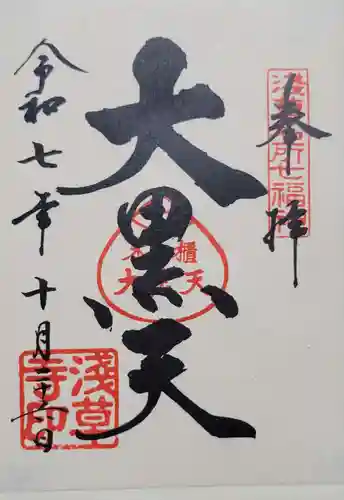 奉拝
浅草名所七福神
大黒天
令和七年十月二十六日
浅草寺印